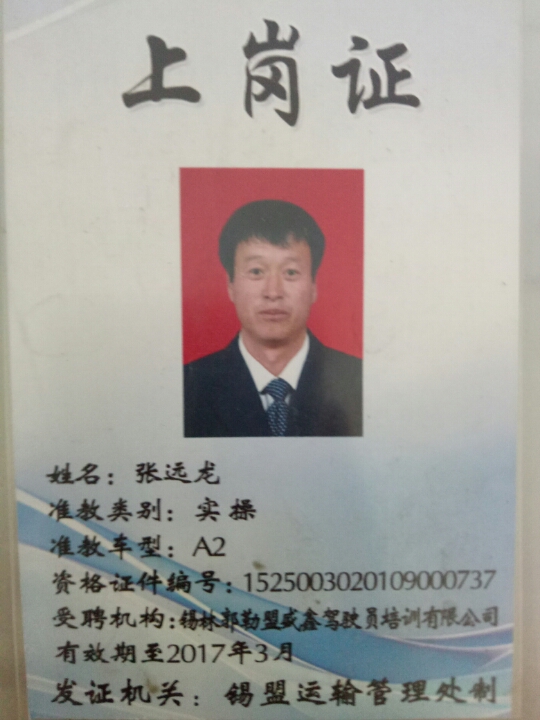 上岗证
姓名：张远龙
准教类别：实操
准教车型：A2
资格证件编号：1525003020109000737
受聘机构：锡林郭勒盟威鑫驾驶员培训有限公司
有效期至2017年3月
发证机关：锡盟运输管理处制